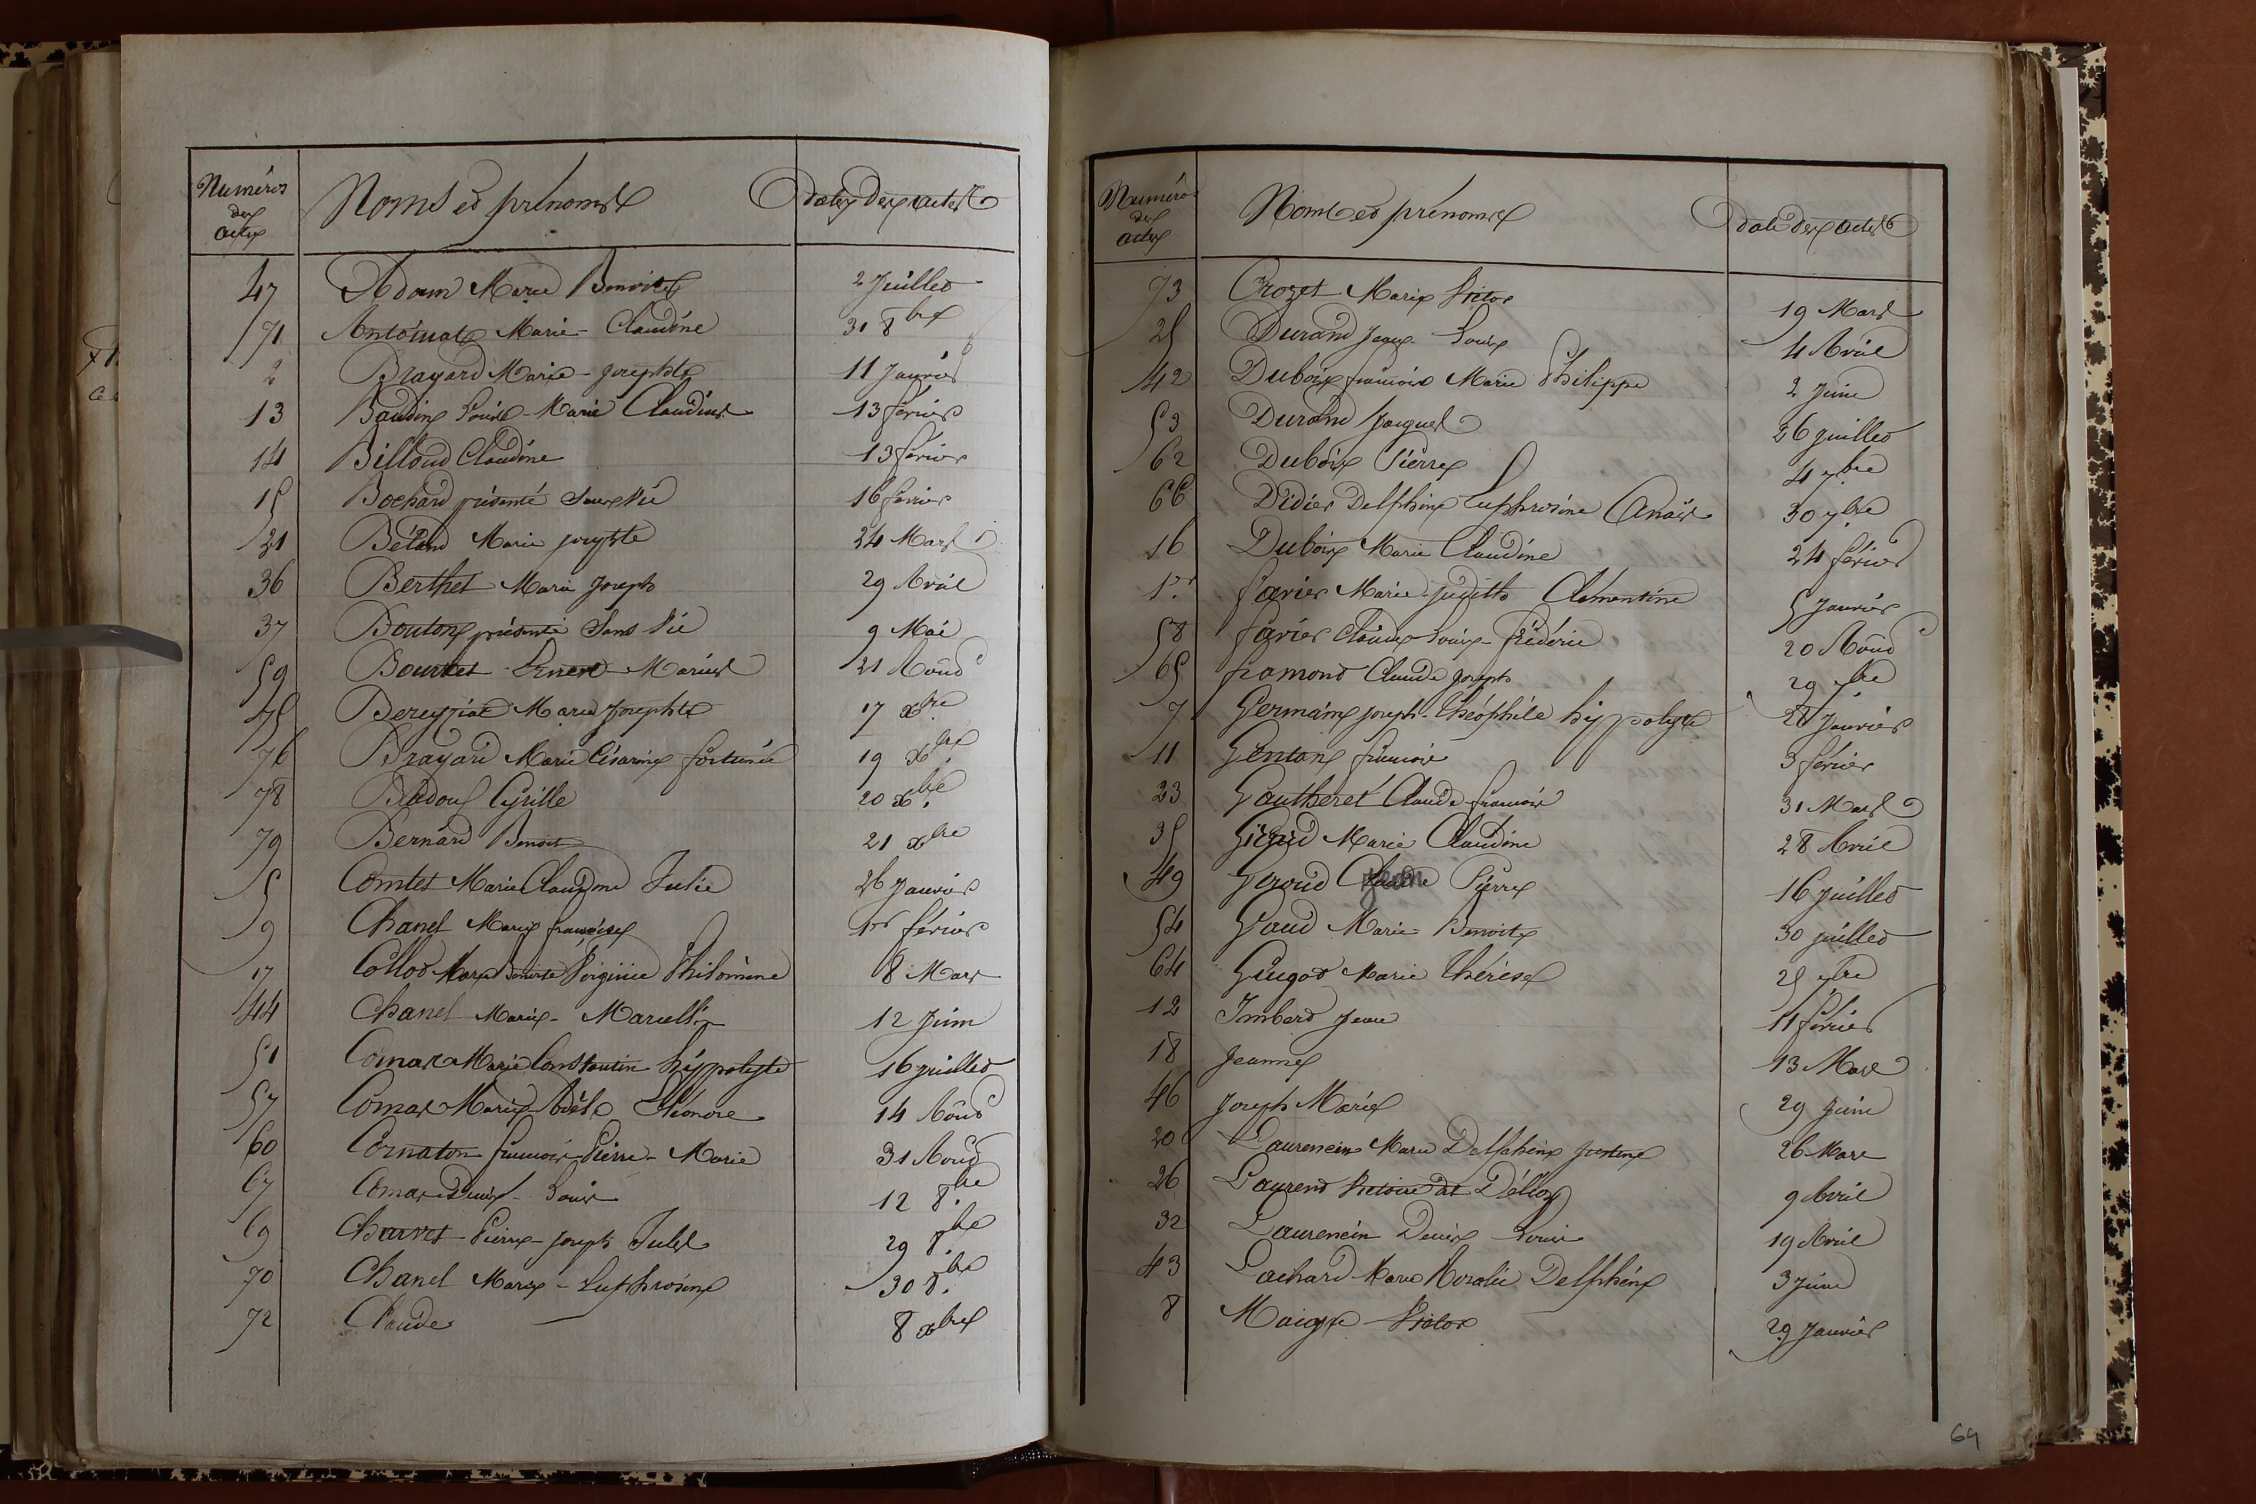 Numéros des actes Noms et prénoms dates des actes
47 Adam Marie Benoite 2 Juillet
71 Antoinat Marie-Claudine 31 8bre
2 Brayard Marie-Josephte 11 Janvier
13 Baudin Louise-Marie Claudine 13 février
14 Billoud Claudine 13 février
15 Bochard présenté Sans Vie 16 février
21 Bétand Marie josephte 24 Mars
36 Berthet Marie Joseph 29 Avril
37 Bouton présenté Sans Vie 9 Mai
59 Bourbet Ernest Marius 21 Août
75 Bereyziat Marie Josephte 17 xbre
76 Brayard Marie Césarine fortunée 19 xbre
78 Badoux Cyrille 20 xbre
79 Bernard Benoit 21 xbre
5 Comtet Marie Claudine Julie 26 Janvier
9 Chanel Marie françoise 1er février
17 Collod Marie Benoite Virginie Philomène 8 Mars
44 Chanel Marie-Marcellin 12 Juin
51 Comas Marie Constantin hippolyte 16 juillet
57 Comas Marie Adèle Eléonore 14 Août
60 Cornaton françois Pierre-Marie 31 Août
67 Comas Denis-Louis 12 8bre
69 Charvet Pierre-Joseph Jules 29 8bre
70 Chanel Marie-Euphrosine 30 8bre
72 Claude 8 xbre
Numéros des actes Noms et prénoms date des actes
73 Crozet Marie Victor 19 Mars
25 Durand Jean-Louis 4 Avril
42 Dubois françois Marie Philippe 2 Juin
53 Durand Jacques 26 juillet
62 Dubois Pierre 4 7bre
66 Didier Delphine Euphrosine Anaïs 30 7bre
16 Dubois Marie Claudine 24 février
1er favier Marie judith Clementine 5 Janvier
58 favier Claude Louis-frédéric 20 Août
65 framond Claude Joseph 29 7bre
7 Germain joseph-théophile hippolyte Janvier
11 Genton françois 3 février
23 Gautheret Claude-françois 31 Mars
35 Giraud Marie Claudine 28 Avril
49 Geroud Jean Pierre 16 juillet
54 Gaud Marie-Benoite 30 juillet
64 Guigod Marie thérèse 25 7bre
12 Imberd Jean 11 février
18 Jeanne 13 Mars
46 Joseph Marie 29 Juin
20 Laurencin Marie Delphine justine 26 Mars
26 Laurend Victoire dit 9 Avril
32 Laurencin Denis Louis 19 Avril
43 Lachard Marie Rosalie Delphine 3 Juin
8 Maigre Victor 29 Janvier
64